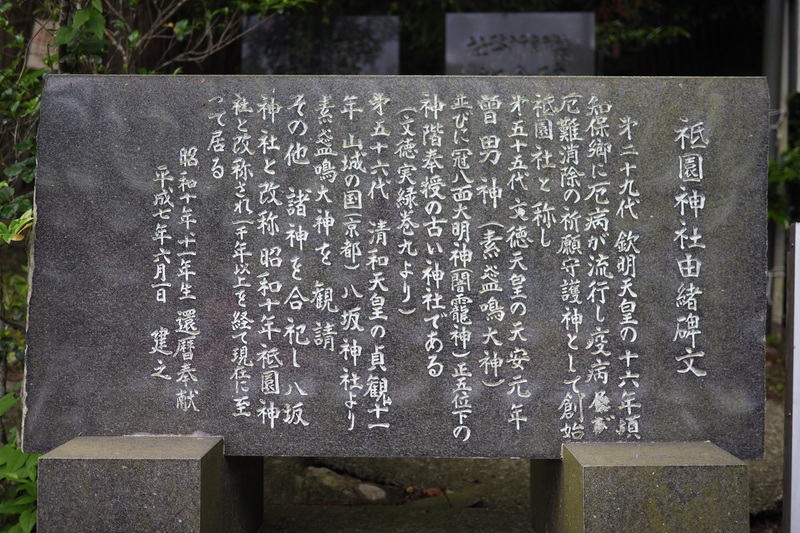 祇園神社由緒碑文
第二十九代 欽明天皇の十六年頃
知保郷に厄病が流行し疫病
厄難消除の祈願守護神として創始
祇園社と称し
第五十五代 文徳天皇の天安元年
曽男神(素盞鳴大神)
並びに冠八面大明神(闇龗神)正五位下の
神階奉授の古い神社である
(文徳実録巻九より)
第五十六代 清和天皇の貞観十一
年 山城の国(京都)八坂神社より
素盞鳴大神を 観請
その他 諸神を合祀し八坂
神社と改称 昭和十年祇園神
社と改称され(千年以上を経て現在に至
って居る
昭和十年十一年生 還暦奉献
平成七年六月一日 建之